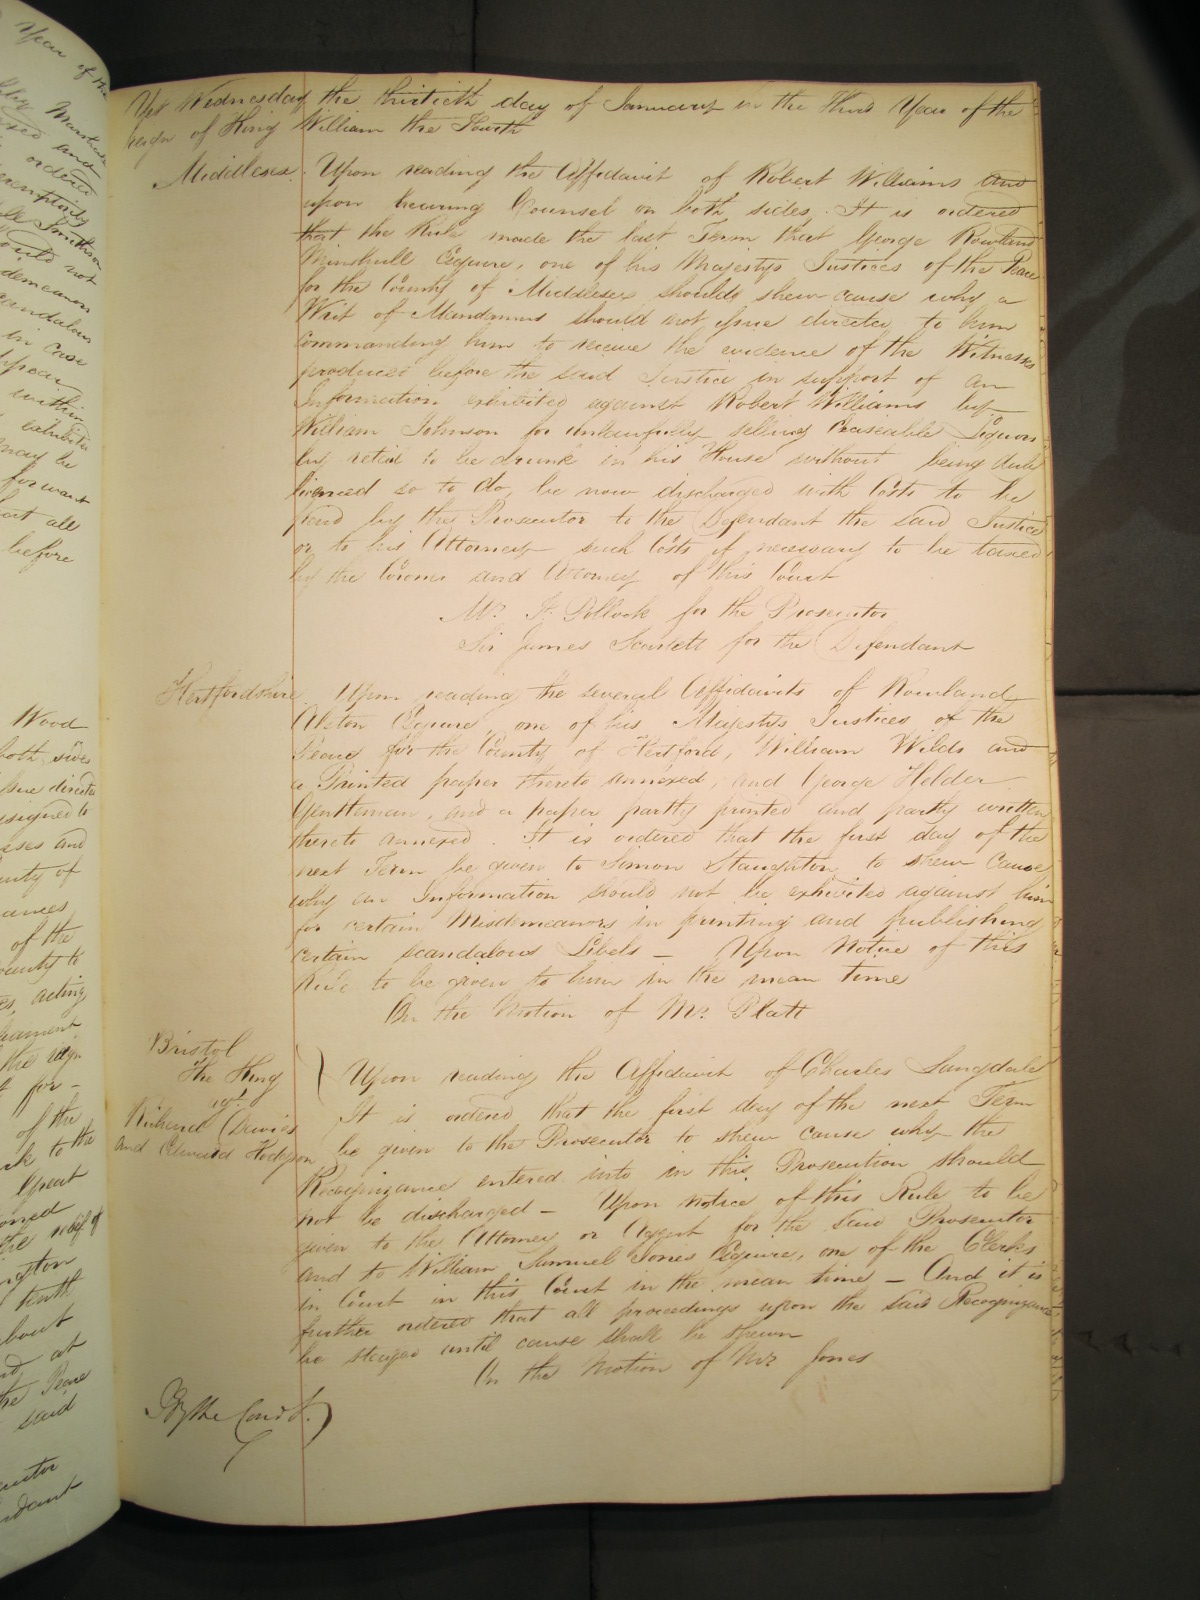 Yet Wednesday the thirtieth day of January in the Third Year of the
reign of King William the Fourth
Middlesex. Upon reading the Affidavit of Robert Williams and
upon hearing Counsel on both sides. It is ordered
that the Rule made the last Term that George Rowland
Minshull Esquire, one of his Majestys Justices of the Peace
for the County of Middlesex should shew cause why a
Writ of Mandamus should not issue directed to him
commanding him to receive the evidence of the Witnesses
produced before the said Justice in support of an
Information exhibited against Robert Williams by
William Johnson for unlawfully selling Exciseable Liquors
by retail to be drunk in his House without being duly
licensed so to do, be now discharged with Costs to be
paid by the Prosecutor to the Defendant the said Justice
or to his Attorney such Costs if necessary to be taxed
by the Coroner and Attorney of this Court
Mr. F. Pollock for the Prosecutor
Sir James Scarlett for the Defendant
Hertfordshire Upon reading the several Affidavits of Rowland
Alston Esquire, one of his Majestys Justices of the
Peace for the County of Hertford, William Wilds and
a Printed paper thereto annexed, and George Helder
Gentleman, and a paper partly printed and partly written
thereto annexed. It is ordered that the first day of the
next Term be given to Simon Staughton to shew Cause
why an Information should not be exhibited against him
for certain Misdemeanors in printing and publishing
certain scandalous Libels — Upon Notice of this
Rule to be given to him in the mean time
On the Motion of Mr. Platt
Bristol
The King
agt.
Richard Davies
and Edward Hodgson
Upon reading the Affidavit of Charles Langdale
It is ordered that the first day of the next Term
be given to the Prosecutor to shew cause why the
Recognizance entered into in this Prosecution should
not be discharged — Upon notice of this Rule to be
given to the Attorney or Agent for the said Prosecutor
and to William Samuel Jones Esquire, one of the Clerks
in Court in this Court in the mean time — And it is
further ordered that all proceedings upon the said Recognizance
be stayed until cause shall be shewn
On the Motion of Mr. Jones
By the Court